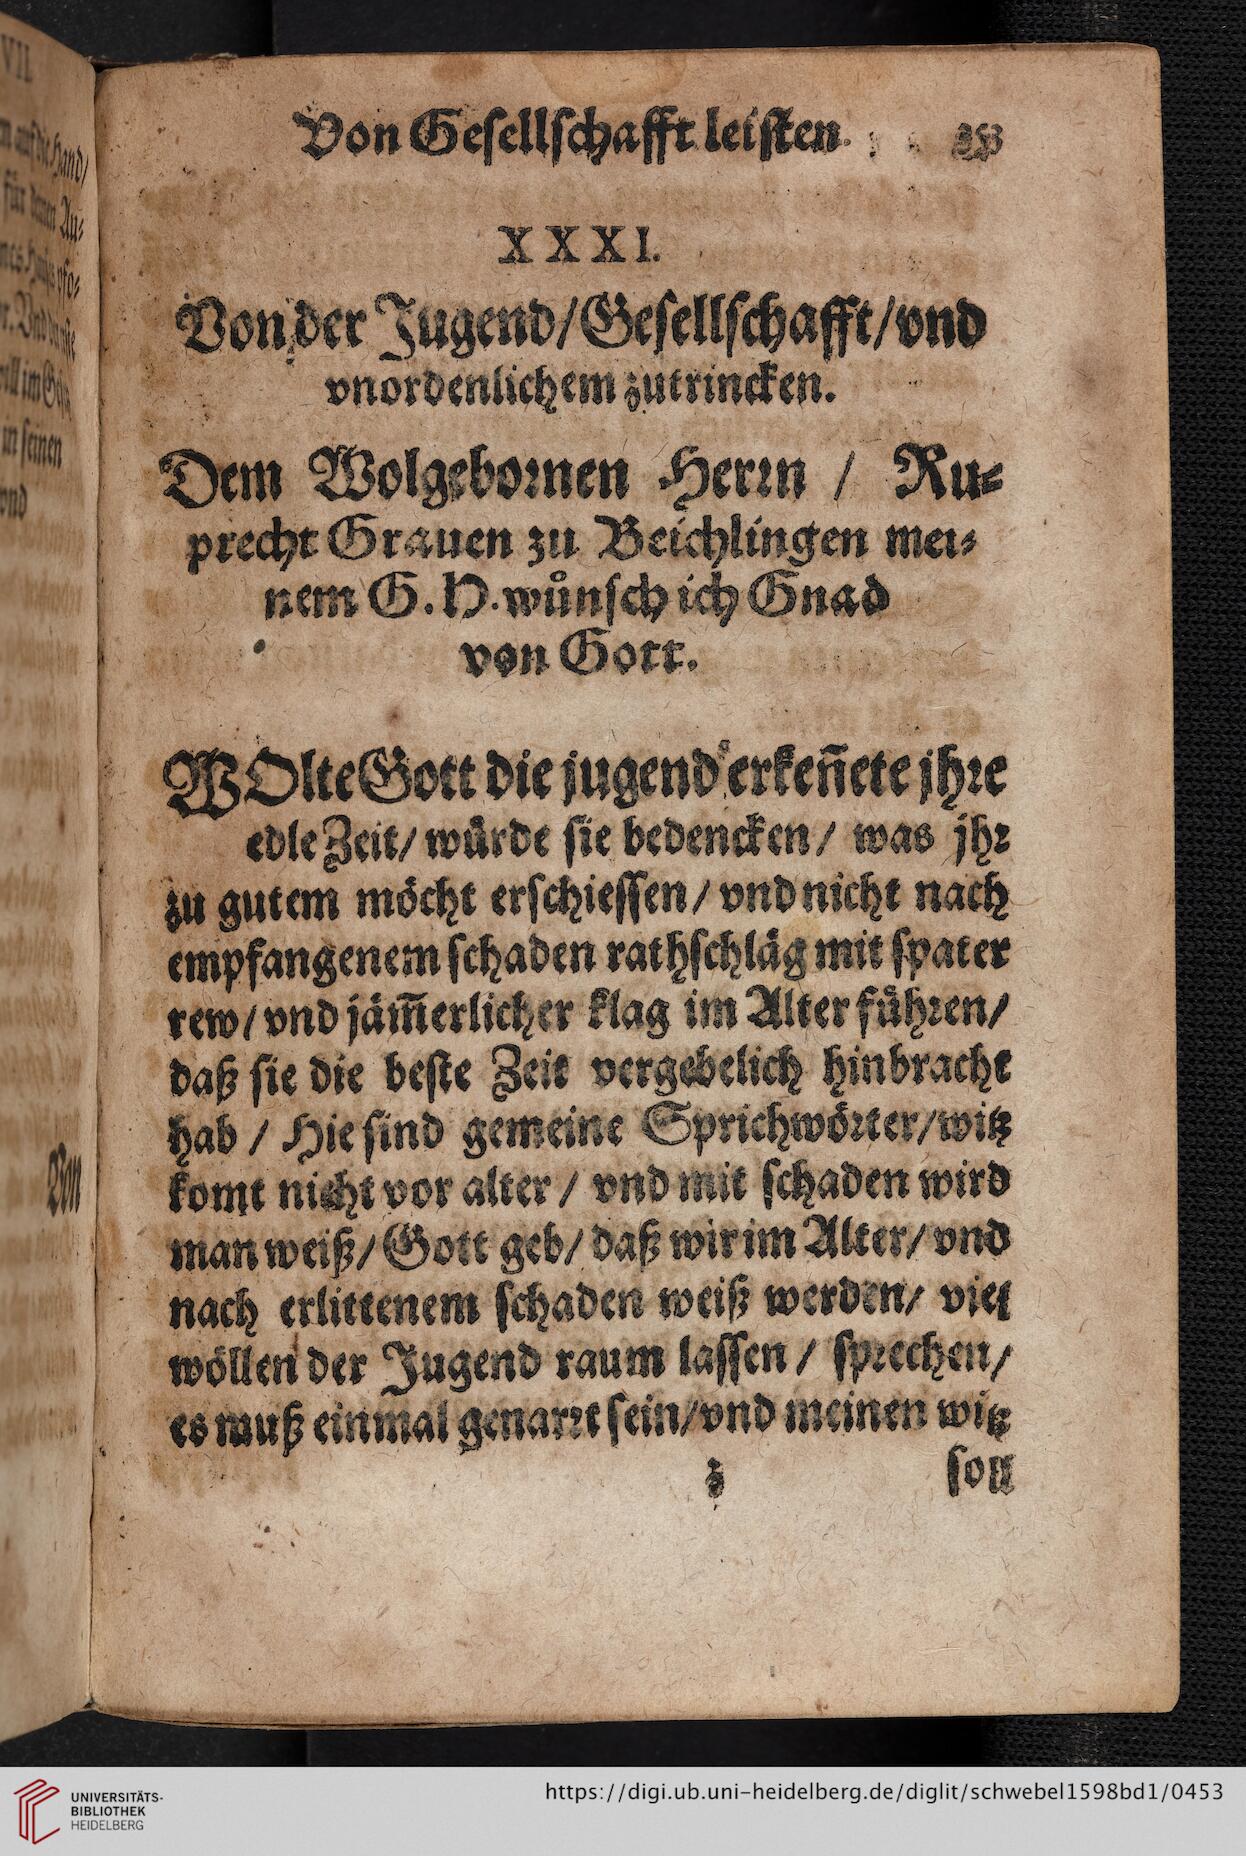 VII
Von Gesellschafft leisten.
XXXI.
Von der Jugend/Gesellschafft/vnd
vnordenlichem zutrincken.
Dem Wolgebornen Herrn / Ru-
precht Grauen zu Beichlingen mei-
nem G. H. wůnsch ich Gnad
von Gott.
WOlte Gott die jugend erkeñete jhre
edle Zeit/ wůrde sie bedencken/ was jhr
zu gutem mőcht erschiessen/ vnd nicht nach
empfangenem schaden rathschläg mit spater
rew/ vnd jäm̃erlicher klag im Alter fůhren/
daß sie die beste Zeit vergebelich hinbracht
hab / Hie sind gemeine Sprichwőrter/witz
komt nicht vor alter / vnd mit schaden wird
man weiß/ Gott geb/ daß wir im Alter/ vnd
nach erlittenem schaden weiß werden/ viel
wőllen der Jugend raum lassen / sprechen/
es muß einmal genarrt sein/vnd meinen witz
z soll
auf die Hand/
für denen Au-
in seinen
vnd
Von
UNIVERSITÄTS-
BIBLIOTHEK
HEIDELBERG
https://digi.ub.uni-heidelberg.de/diglit/schwebel1598bd1/0453